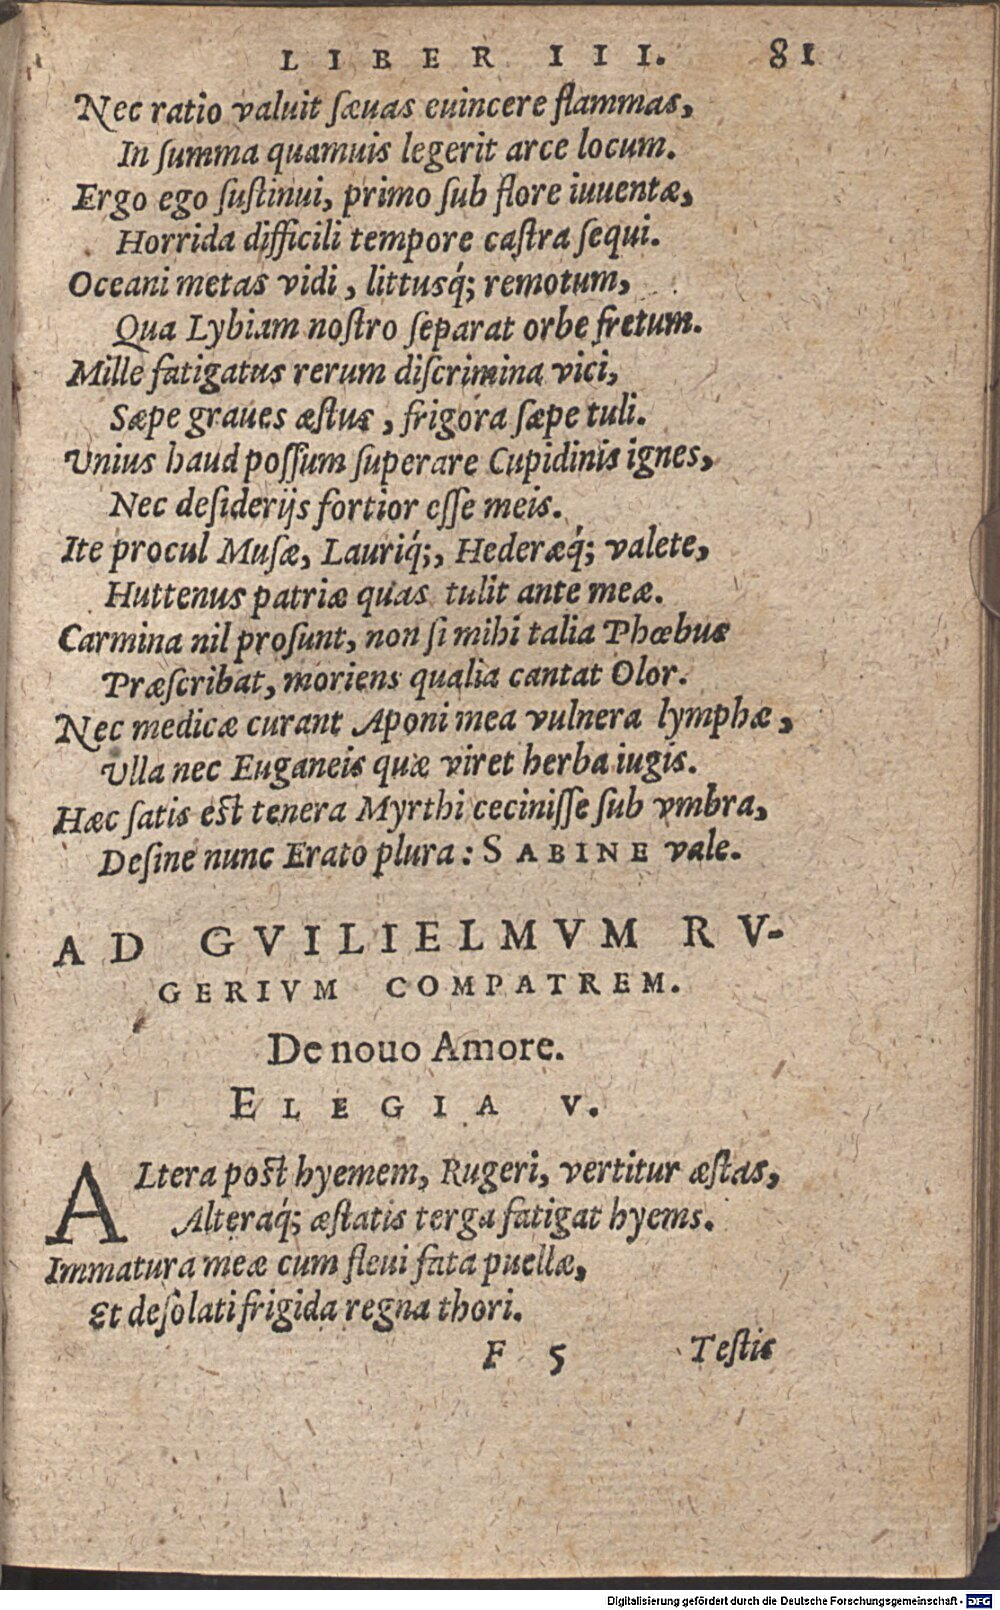 LIBER III. 81
Nec ratio valuit sæuas euincere flammas,
In summa quamuis legerit arce locum.
Ergo ego sustinui, primo sub flore iuuentæ,
Horrida difficili tempore castra sequi.
Oceani metas vidi, littusq́; remotum,
Qua Lybiam nostro separat orbe fretum.
Mille fatigatus rerum discrimina vici,
Sæpe graues æstus, frigora sæpe tuli.
Vnius haud possum superare Cupidinis ignes,
Nec desiderijs fortior esse meis.
Ite procul Musæ, Lauriq́;, Hederæq́; valete,
Huttenus patriæ quas tulit ante meæ.
Carmina nil prosunt, non si mihi talia Phœbus
Præscribat, moriens qualia cantat Olor.
Nec medicæ curant Aponi mea vulnera lymphæ,
Vlla nec Euganeis quæ viret herba iugis.
Hæc satis est tenera Myrthi cecinisse sub vmbra,
Desine nunc Erato plura: SABINE vale.
AD GVILIELMVM RV-
GERIVM COMPATREM.
De nouo Amore.
ELEGIA V.
ALtera post hyemem, Rugeri, vertitur æstas,
Alteraq́; æstatis terga fatigat hyems.
Immatura meæ cum fleui fata puellæ,
Et desolati frigida regna thori.
F 5 Testis
Digitalisierung gefördert durch die Deutsche Forschungsgemeinschaft - DFG